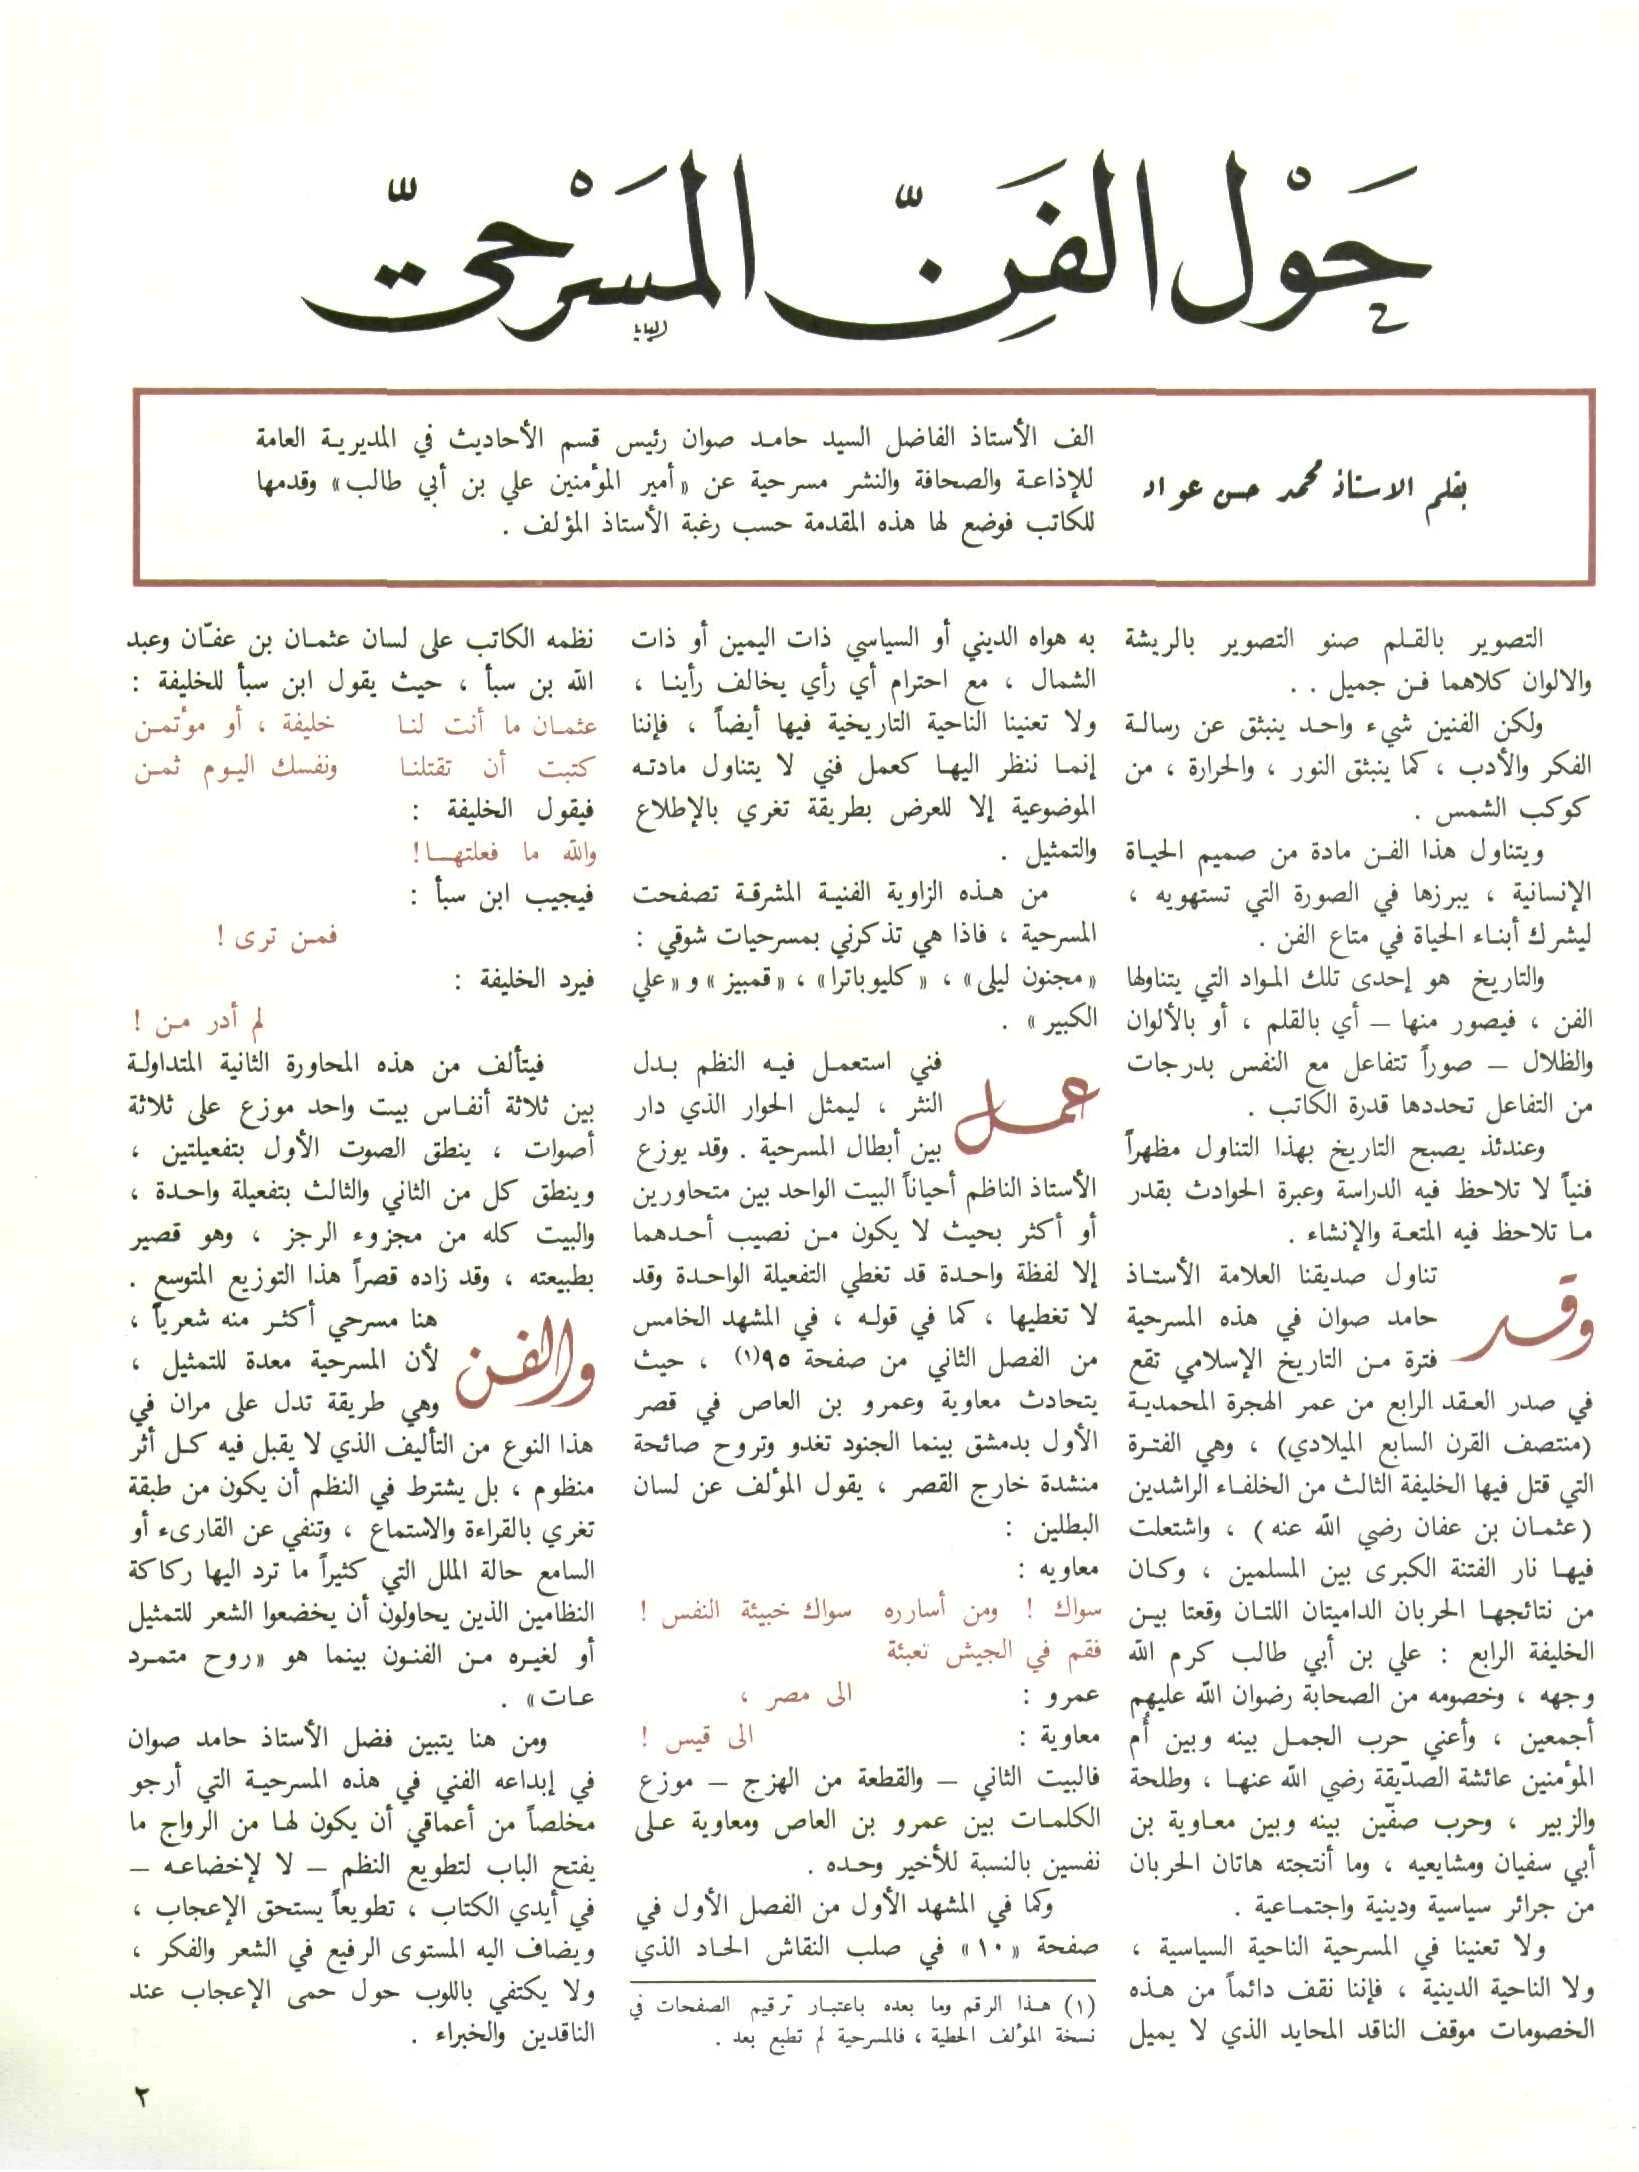 حَوْل الفَنِّ المَسْرَحيّ
بقلم الاستاذ محمد حسن عواد
الف الأستاذ الفاضل السيد حامد صوان رئيس قسم الأحاديث في المديرية العامة
للإذاعة والصحافة والنشر مسرحية عن «أمير المؤمنين علي بن أبي طالب» وقدمها
للكاتب فوضع لها هذه المقدمة حسب رغبة الأستاذ المؤلف .
التصوير بالقلم صنو التصوير بالريشة
والالوان كلاهما فن جميل . .
ولكن الفنين شيء واحد ينبثق عن رسالة
الفكر والأدب ، كما ينبثق النور ، والحرارة ، من
كوكب الشمس .
ويتناول هذا الفن مادة من صميم الحياة
الإنسانية ، يبرزها في الصورة التي تستهويه ،
ليشرك أبناء الحياة في متاع الفن .
والتاريخ هو إحدى تلك المواد التي يتناولها
الفن ، فيصور منها – أي بالقلم ، أو بالألوان
والظلال – صوراً تتفاعل مع النفس بدرجات
من التفاعل تحددها قدرة الكاتب .
وعندئذ يصبح التاريخ بهذا التناول مظهراً
فنياً لا تلاحظ فيه الدراسة وعبرة الحوادث بقدر
ما تلاحظ فيه المتعة والإنشاء .
وقد تناول صديقنا العلامة الأستاذ
حامد صوان في هذه المسرحية
فترة من التاريخ الإسلامي تقع
في صدر العقد الرابع من عمر الهجرة المحمدية
(منتصف القرن السابع الميلادي) ، وهي الفترة
التي قتل فيها الخليفة الثالث من الخلفاء الراشدين
(عثمان بن عفان رضي الله عنه) ، واشتعلت
فيها نار الفتنة الكبرى بين المسلمين ، وكان
من نتائجها الحربان الداميتان اللتان وقعتا بين
الخليفة الرابع : علي بن أبي طالب كرم الله
وجهه ، وخصومه من الصحابة رضوان الله عليهم
أجمعين ، وأعني حرب الجمل بينه وبين أُم
المؤمنين عائشة الصدّيقة رضي الله عنها ، وطلحة
والزبير ، وحرب صفّين بينه وبين معاوية بن
أبي سفيان ومشايعيه ، وما أنتجته هاتان الحربان
من جرائر سياسية ودينية واجتماعية .
ولا تعنينا في المسرحية الناحية السياسية ،
ولا الناحية الدينية ، فإننا نقف دائماً من هذه
الخصومات موقف الناقد المحايد الذي لا يميل
به هواه الديني أو السياسي ذات اليمين أو ذات
الشمال ، مع احترام أي رأي يخالف رأينا ،
ولا تعنينا الناحية التاريخية فيها أيضاً ، فإننا
إنما ننظر اليها كعمل فني لا يتناول مادته
الموضوعية إلا للعرض بطريقة تغري بالإطلاع
والتمثيل .
من هذه الزاوية الفنية المشرقة تصفحت
المسرحية ، فاذا هي تذكرني بمسرحيات شوقي :
«مجنون ليلى» ، «كليوباترا» ، «قمبيز» و «علي
الكبير» .
عمل فني استعمل فيه النظم بدل
النثر ، ليمثل الحوار الذي دار
بين أبطال المسرحية . وقد يوزع
الأستاذ الناظم أحياناً البيت الواحد بين متحاورين
أو أكثر بحيث لا يكون من نصيب أحدهما
إلا لفظة واحدة قد تغطي التفعيلة الواحدة وقد
لا تغطيها ، كما في قوله ، في المشهد الخامس
من الفصل الثاني من صفحة ٩٥(١) ، حيث
يتحادث معاوية وعمرو بن العاص في قصر
الأول بدمشق بينما الجنود تغدو وتروح صائحة
منشدة خارج القصر ، يقول المؤلف عن لسان
البطلين :
معاويه :
سواك ! ومن أسارره سواك خبيئة النفس !
فقم في الجيش تعبئة
عمرو : الى مصر ،
معاوية : الى قيس !
فالبيت الثاني – والقطعة من الهزج – موزع
الكلمات بين عمرو بن العاص ومعاوية على
نفسين بالنسبة للأخير وحده .
وكما في المشهد الأول من الفصل الأول في
صفحة «١٠» في صلب النقاش الحاد الذي
(١) هذا الرقم وما بعده باعتبار ترقيم الصفحات في
نسخة المؤلف الخطية ، فالمسرحية لم تطبع بعد .
نظمه الكاتب على لسان عثمان بن عفّان وعبد
الله بن سبأ ، حيث يقول ابن سبأ للخليفة :
عثمان ما أنت لنا خليفة ، أو مؤتمن
كتبت أن تقتلنا ونفسك اليوم ثمن
فيقول الخليفة :
والله ما فعلتها !
فيجيب ابن سبأ :
فمن ترى !
فيرد الخليفة :
لم أدر من !
فيتألف من هذه المحاورة الثانية المتداولة
بين ثلاثة أنفاس بيت واحد موزع على ثلاثة
أصوات ، ينطق الصوت الأول بتفعيلتين ،
وينطق كل من الثاني والثالث بتفعيلة واحدة ،
والبيت كله من مجزوء الرجز ، وهو قصير
بطبيعته ، وقد زاده قصراً هذا التوزيع المتوسع .
والفن هنا مسرحي أكثر منه شعرياً ،
لأن المسرحية معدة للتمثيل ،
وهي طريقة تدل على مران في
هذا النوع من التأليف الذي لا يقبل فيه كل أثر
منظوم ، بل يشترط في النظم أن يكون من طبقة
تغري بالقراءة والاستماع ، وتنفي عن القارىء أو
السامع حالة الملل التي كثيراً ما ترد اليها ركاكة
النظامين الذين يحاولون أن يخضعوا الشعر للتمثيل
أو لغيره من الفنون بينما هو «روح متمرد
عات» .
ومن هنا يتبين فضل الأستاذ حامد صوان
في إبداعه الفني في هذه المسرحية التي أرجو
مخلصاً من أعماقي أن يكون لها من الرواج ما
يفتح الباب لتطويع النظم – لا لإخضاعه –
في أيدي الكتاب ، تطويعاً يستحق الإعجاب ،
ويضاف اليه المستوى الرفيع في الشعر والفكر ،
ولا يكتفي باللوب حول حمى الإعجاب عند
الناقدين والخبراء .
٢